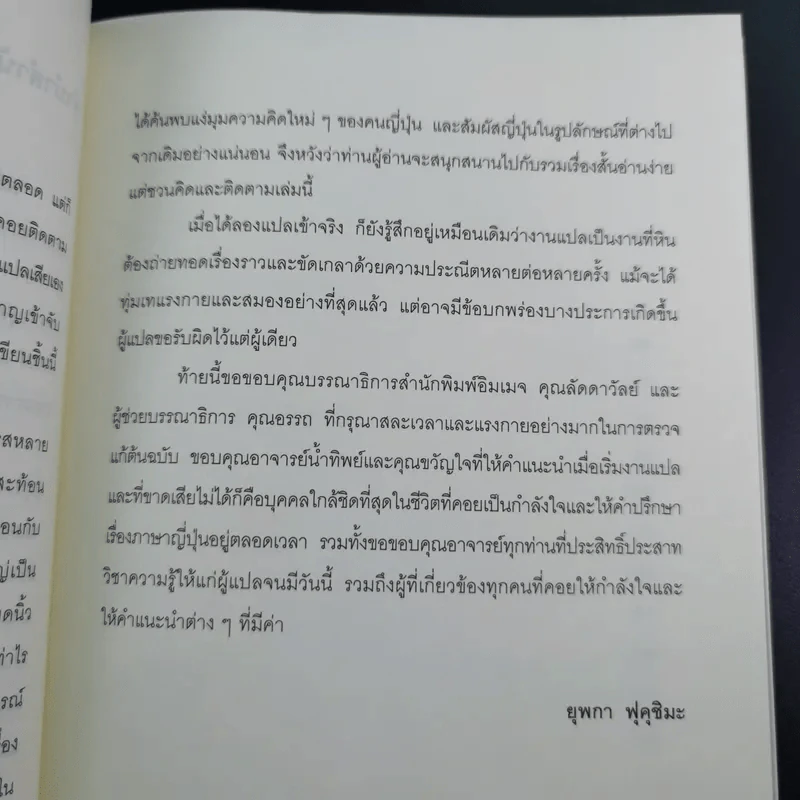 ตลอด แต่ก็
คอยติดตาม
แปลเสียเอง
าญเข้าจับ
ขียนชิ้นนี้
สหลาย
สะท้อน
อนกับ
ญ่เป็น
ดนิ้ว
ท่าไร
ารณ์
อง
ใน
ได้ค้นพบแง่มุมความคิดใหม่ ๆ ของคนญี่ปุ่น และสัมผัสญี่ปุ่นในรูปลักษณ์ที่ต่างไป
จากเดิมอย่างแน่นอน จึงหวังว่าท่านผู้อ่านจะสนุกสนานไปกับรวมเรื่องสั้นอ่านง่าย
แต่ชวนคิดและติดตามเล่มนี้
เมื่อได้ลองแปลเข้าจริง ก็ยังรู้สึกอยู่เหมือนเดิมว่างานแปลเป็นงานที่หิน
ต้องถ่ายทอดเรื่องราวและขัดเกลาด้วยความประณีตหลายต่อหลายครั้ง แม้จะได้
ทุ่มเทแรงกายและสมองอย่างที่สุดแล้ว แต่อาจมีข้อบกพร่องบางประการเกิดขึ้น
ผู้แปลขอรับผิดไว้แต่ผู้เดียว
ท้ายนี้ขอขอบคุณบรรณาธิการสำนักพิมพ์อิมเมจ คุณลัดดาวัลย์ และ
ผู้ช่วยบรรณาธิการ คุณอรรถ ที่กรุณาสละเวลาและแรงกายอย่างมากในการตรวจ
แก้ต้นฉบับ ขอบคุณอาจารย์น้ำทิพย์และคุณขวัญใจที่ให้คำแนะนำเมื่อเริ่มงานแปล
และที่ขาดเสียไม่ได้ก็คือบุคคลใกล้ชิดที่สุดในชีวิตที่คอยเป็นกำลังใจและให้คำปรึกษา
เรื่องภาษาญี่ปุ่นอยู่ตลอดเวลา รวมทั้งขอขอบคุณอาจารย์ทุกท่านที่ประสิทธิ์ประสาท
วิชาความรู้ให้แก่ผู้แปลจนมีวันนี้ รวมถึงผู้ที่เกี่ยวข้องทุกคนที่คอยให้กำลังใจและ
ให้คำแนะนำต่าง ๆ ที่มีค่า
ยุพกา ฟุคุชิมะ